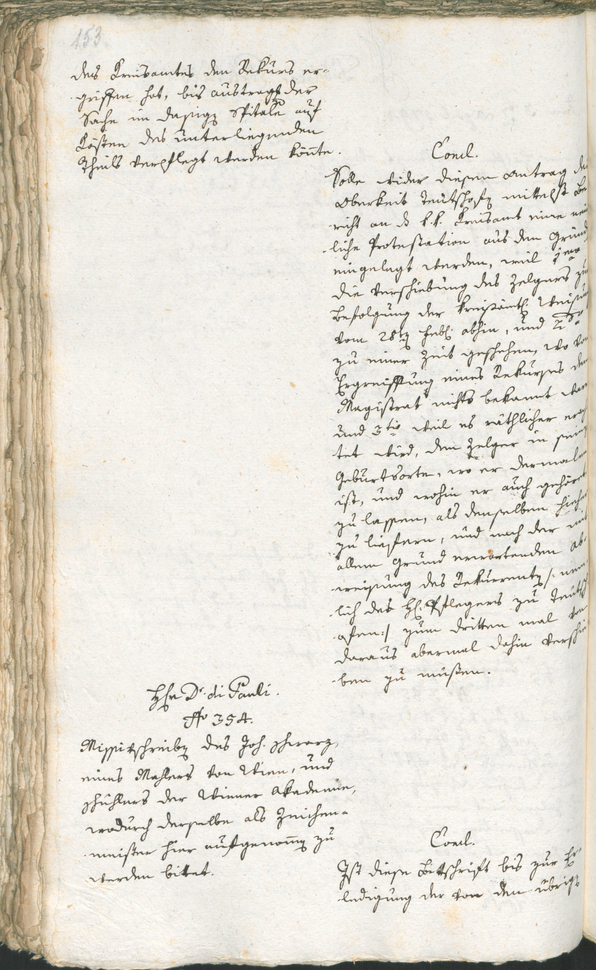 153.
des Kreisamtes den Rekurs er-
griffen hat, bis austrag der
Sache im dasigen Spitale auf
Kösten des unterliegenden
Theils verpflegt werden könte.
Concl.
Solle wider diesen Antrag der
Oberkeit mittelst Be
richt an d k. k. Kreisamt eine
liche Protestation aus dem Grund
eingelegt werden, weil
die Verschiebung des Zelgers zu
Befolgung der kreisämtl. Weisung
vom 28ten abhin, und 2do
zu einer Zeit geschehen, wo von
Ergreiffung eines Rekurses dem
Magistrat nichts bekannt war
und 3tio weil es räthlicher
tet wird, den Zelger in seinem
Geburtsorte, wo er dermalen
ist, und wohin er auch gehöret
zu lassen, als denselben hieher
zu liefern, und nach der mit
allem Grund erwartenden ab-
weisung des Rekurrenten /: nem
lich des H. Pflegers zu
ofen :/ zum dritten mal von
daraus abermal dahin verschie
ben zu müßen.
Hln Dr. di Pauli.
No 354.
Bittschreiben des Joh. Schwarz,
eines Mahlers von Wien, und
Schühlers der Wiener Akademie,
wodurch derselbe als Zeichen-
meister hier aufgenommen zu
werden bitet.
Concl.
Ist diese Bittschrift bis zur Er-
ledigung der von den übrigen